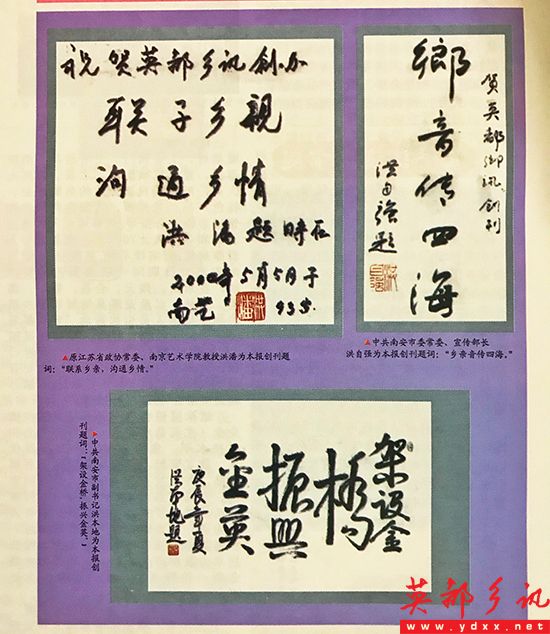 祝贺英都乡讯创办
联于乡親
沟通乡情
洪潘题 时在
2000年5月5日于
南艺 935.
贺英都乡讯创刊
鄉音传四海
洪自强题
▲原江苏省政协常委、南京艺术学院教授洪潘为本报创刊题
词：“联系乡亲，沟通乡情。”
▲中共南安市委常委、宣传部长
洪自强为本报创刊题词：“乡亲音传四海。”
架设金
橋
振興
金英
庚辰年夏
洪本地题
▲中共南安市副书记洪本地为本报创
刊题词：“架设金桥，振兴金英。”
英都乡讯
www.ydxx.net